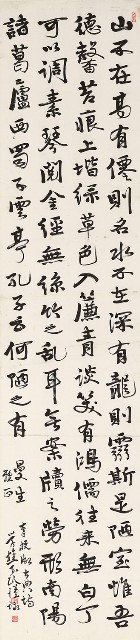 山不在高有僊則名水不在深有龍則靈斯是陋室唯吾
德馨苔痕上堦綠草色入簾青談笑有鴻儒往來無白丁
可以调素琴閱金經無絲竹之亂耳無案牘之勞形南陽
諸葛廬西蜀子雲亭孔子云何陋之有
曼生
雅正